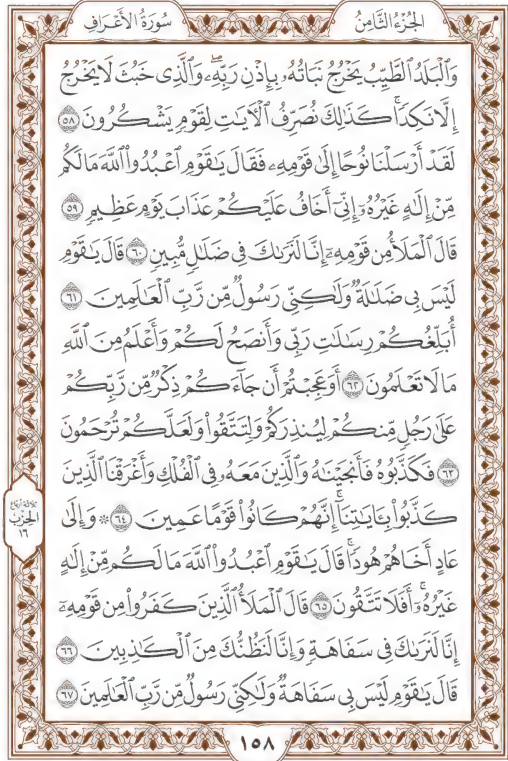 سُورَةُ الْأَعْرَافِ
الجُزْءُ الثَّامِنُ
وَالْبَلَدُ الطَّيِّبُ يَخْرُجُ نَبَاتُهُ بِإِذْنِ رَبِّهِ ۖ وَالَّذِي خَبُثَ لَا يَخْرُجُ
إِلَّا نَكِدًا ۚ كَذَٰلِكَ نُصَرِّفُ الْآيَاتِ لِقَوْمٍ يَشْكُرُونَ ٥٨
لَقَدْ أَرْسَلْنَا نُوحًا إِلَىٰ قَوْمِهِ فَقَالَ يَٰقَوْمِ اعْبُدُوا اللَّهَ مَا لَكُم
مِّنْ إِلَٰهٍ غَيْرُهُ إِنِّي أَخَافُ عَلَيْكُمْ عَذَابَ يَوْمٍ عَظِيمٍ ٥٩
قَالَ الْمَلَأُ مِن قَوْمِهِ إِنَّا لَنَرَىٰكَ فِي ضَلَٰلٍ مُّبِينٍ ٦٠ قَالَ يَٰقَوْمِ
لَيْسَ بِي ضَلَٰلَةٌ وَلَٰكِنِّي رَسُولٌ مِّن رَّبِّ الْعَٰلَمِينَ ٦١
أُبَلِّغُكُمْ رِسَٰلَٰتِ رَبِّي وَأَنصَحُ لَكُمْ وَأَعْلَمُ مِنَ اللَّهِ
مَا لَا تَعْلَمُونَ ٦٢ أَوَعَجِبْتُمْ أَن جَاءَكُمْ ذِكْرٌ مِّن رَّبِّكُمْ
عَلَىٰ رَجُلٍ مِّنكُمْ لِيُنذِرَكُمْ وَلِتَتَّقُوا وَلَعَلَّكُمْ تُرْحَمُونَ
٦٣ فَكَذَّبُوهُ فَأَنجَيْنَٰهُ وَالَّذِينَ مَعَهُ فِي الْفُلْكِ وَأَغْرَقْنَا الَّذِينَ
كَذَّبُوا بِـَٔايَٰتِنَا ۚ إِنَّهُمْ كَانُوا قَوْمًا عَمِينَ ٦٤ ۞ وَإِلَىٰ
عَادٍ أَخَاهُمْ هُودًا ۗ قَالَ يَٰقَوْمِ اعْبُدُوا اللَّهَ مَا لَكُم مِّنْ إِلَٰهٍ
غَيْرُهُ ۚ أَفَلَا تَتَّقُونَ ٦٥ قَالَ الْمَلَأُ الَّذِينَ كَفَرُوا مِن قَوْمِهِ
إِنَّا لَنَرَىٰكَ فِي سَفَاهَةٍ وَإِنَّا لَنَظُنُّكَ مِنَ الْكَٰذِبِينَ ٦٦
قَالَ يَٰقَوْمِ لَيْسَ بِي سَفَاهَةٌ وَلَٰكِنِّي رَسُولٌ مِّن رَّبِّ الْعَٰلَمِينَ ٦٧
ثلاثة أرباع
الحِزْب
١٦
١٥٨